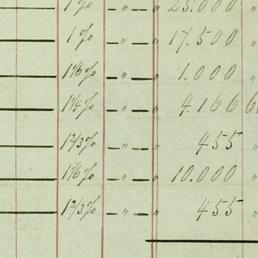 1 % — " — 25.000 "
1 % — " — 17.500 "
1⅙ % — " — 1.000 "
1¼ % — " — 4.166 6
1⅔ % — " — 455 "
1⅙ % — " — 10.000 "
1⅔ % — " — 455 "